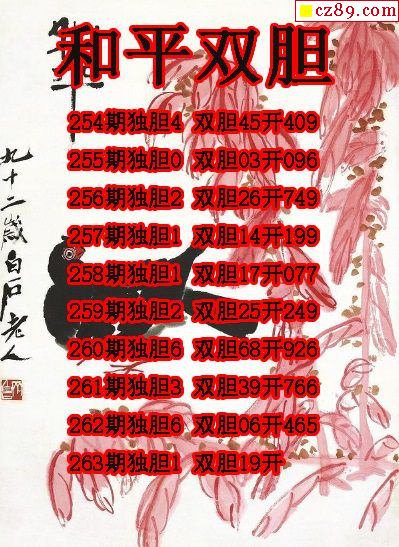 cz89.com
和平双胆
254期独胆4 双胆45开409
255期独胆0 双胆03开096
256期独胆2 双胆26开749
257期独胆1 双胆14开199
258期独胆1 双胆17开077
259期独胆2 双胆25开249
260期独胆6 双胆68开926
261期独胆3 双胆39开766
262期独胆6 双胆06开465
263期独胆1 双胆19开
九十二岁白石老人